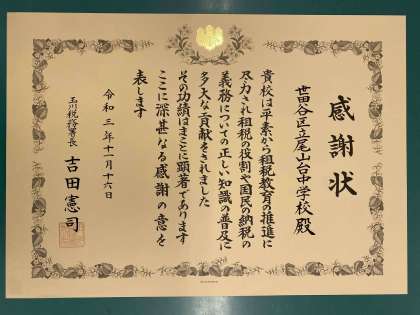 感謝状
世田谷区立尾山台中学校殿
貴校は平素から租税教育の推進に
尽力され租税の役割や国民の納税の
義務についての正しい知識の普及に
多大な貢献をされました
その功績はまことに顕著であります
ここに深甚なる感謝の意を
表します
令和三年十一月十六日
玉川税務署長 吉田憲司